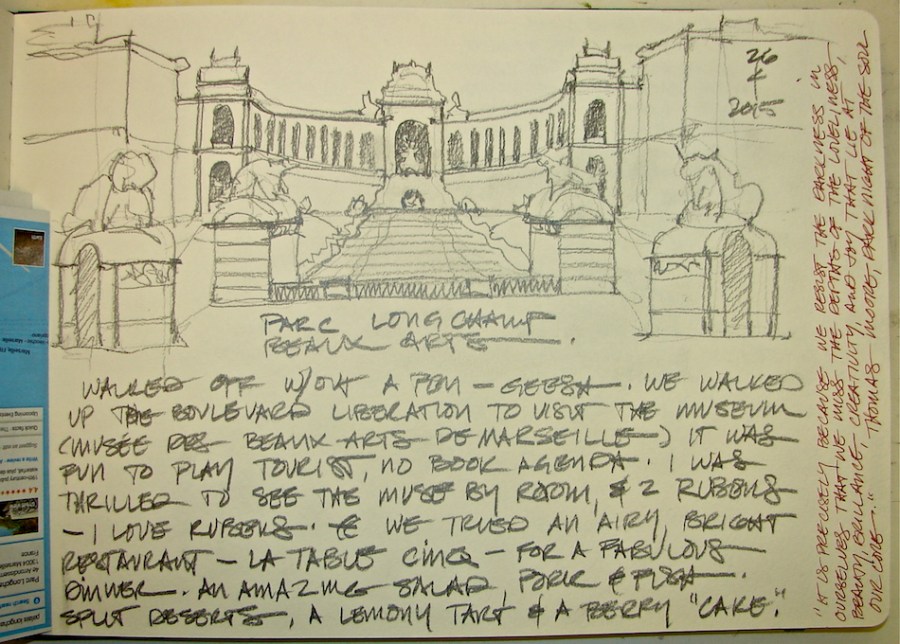 26
2015
PARC LONGCHAMP
BEAUX ARTS
WALKED OFF W/OUT A PEN – GEESH. WE WALKED
UP THE BOULEVARD LIBERATION TO VISIT THE MUSEUM
(MUSÉE DES BEAUX ARTS DE MARSEILLE) IT WAS
FUN TO PLAY TOURIST, NO BOOK AGENDA. I WAS
THRILLED TO SEE THE ROOM, & 2 RUBENS
– I LOVE RUBENS. WE TRIED AN AIRY, BRIGHT
RESTAURANT – LA TABLE CINQ – FOR A FABULOUS
DINNER. AN AMAZING SALAD, PORK & FISH.
SPLIT DESERTS, A LEMONY TART & A BERRY "CAKE."
"IT IS PRECISELY BECAUSE WE RESIST THE DARKNESS IN
OURSELVES THAT WE MISS THE DEPTHS OF THE LOVELINESS,
BEAUTY, BRILLIANCE, CREATIVITY, AND JOY THAT LIE AT
OUR CORE." THOMAS MOORE, DARK NIGHT OF THE SOUL